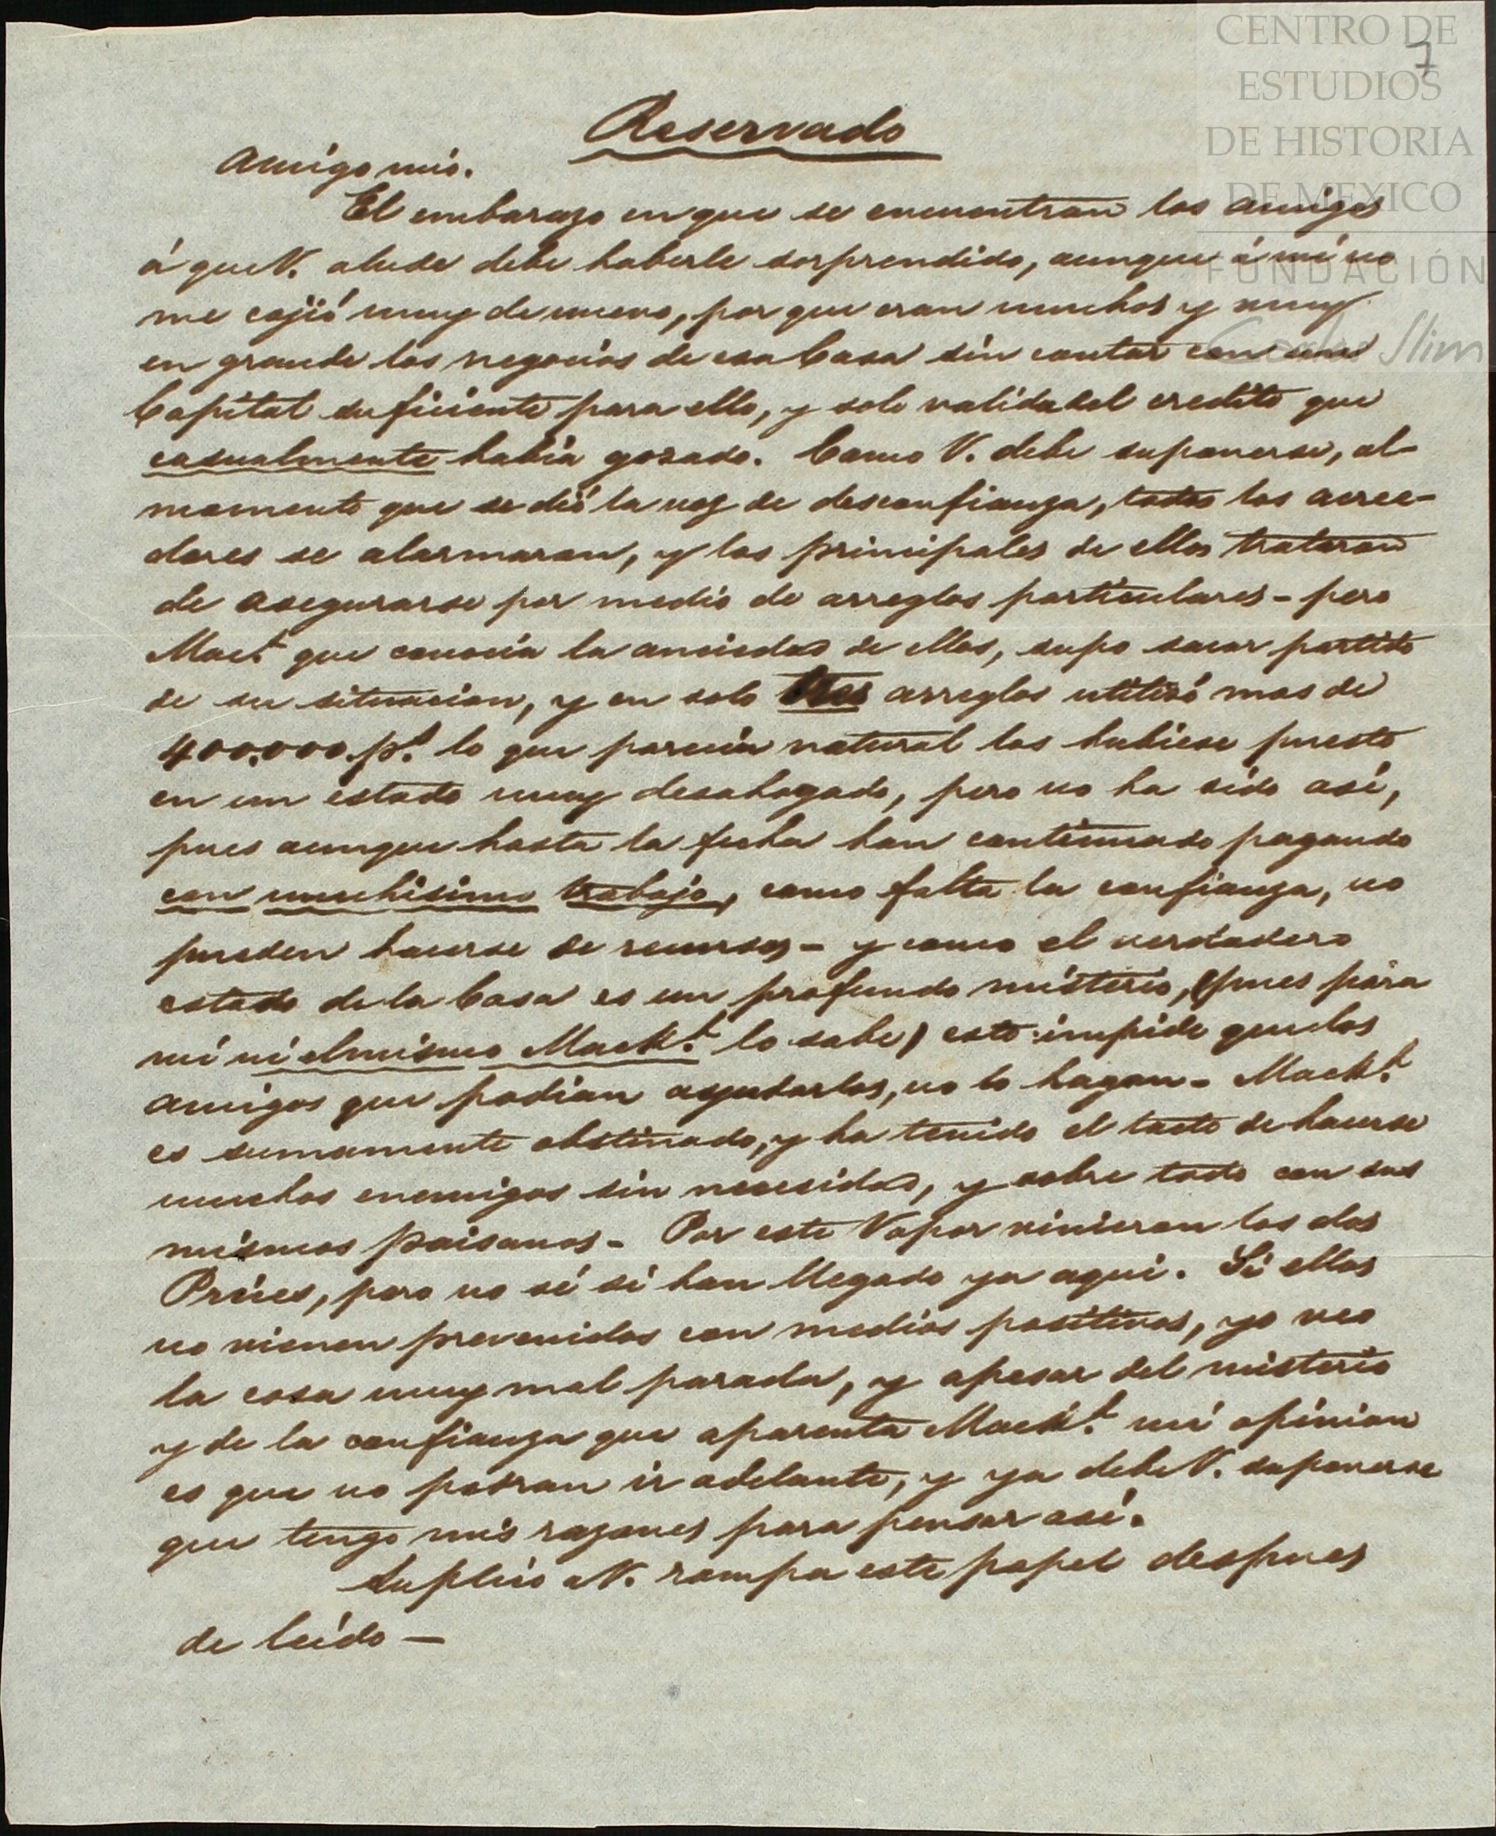 CENTRO DE
ESTUDIOS
DE HISTORIA
DE MEXICO
FUNDACIÓN
Carlos Slim
7
Reservado
Amigo mio.
El embarazo en que se encuentran los amigos
á que V. alude debe haberle sorprendido, aunque á mí no
me cojió muy de nuevo, por que eran muchos y muy
en grande los negocios de esa Casa sin contar con un
Capital suficiente para ello, y solo valida del credito que
casualmente habia gozado. Como V. debe suponerse, al
momento que se dió la voz de desconfianza, todos los acree-
dores se alarmaron, y los principales de ellos trataron
de asegurarse por medio de arreglos particulares - pero
Mack.t que conocia la anciedad de ellos, supo sacar partido
de su situacion, y en solo tres arreglos utilizó mas de
400.000 p.s lo que parecia natural los hubiese puesto
en un estado muy desahogado, pero no ha sido así,
pues aunque hasta la fecha han continuado pagando
con muchisimo trabajo, como falta la confianza, no
pueden hacerse de recursos - y como el verdadero
estado de la Casa es un profundo misterio, (pues para
mí ni el mismo Mack.t lo sabe) esto impide que los
amigos que podian ayudarlos, no lo hagan - Mack.t
es sumamente obstinado, y ha tenido el tacto de hacerse
muchos enemigos sin necesidad, y sobre todo con sus
mismos paisanos - Por este Vapor vinieron los dos
Príces, pero no sé si han llegado ya aqui. Si ellos
no vienen prevenidos con medios positivos, yo veo
la cosa muy mal parada, y apesar del misterio
y de la confianza que aparenta Mack.t mi opinion
es que no podran ir adelante, y ya debe V. suponerse
que tengo mis razones para pensar así.
Suplico a V. rompa este papel despues
de leído —